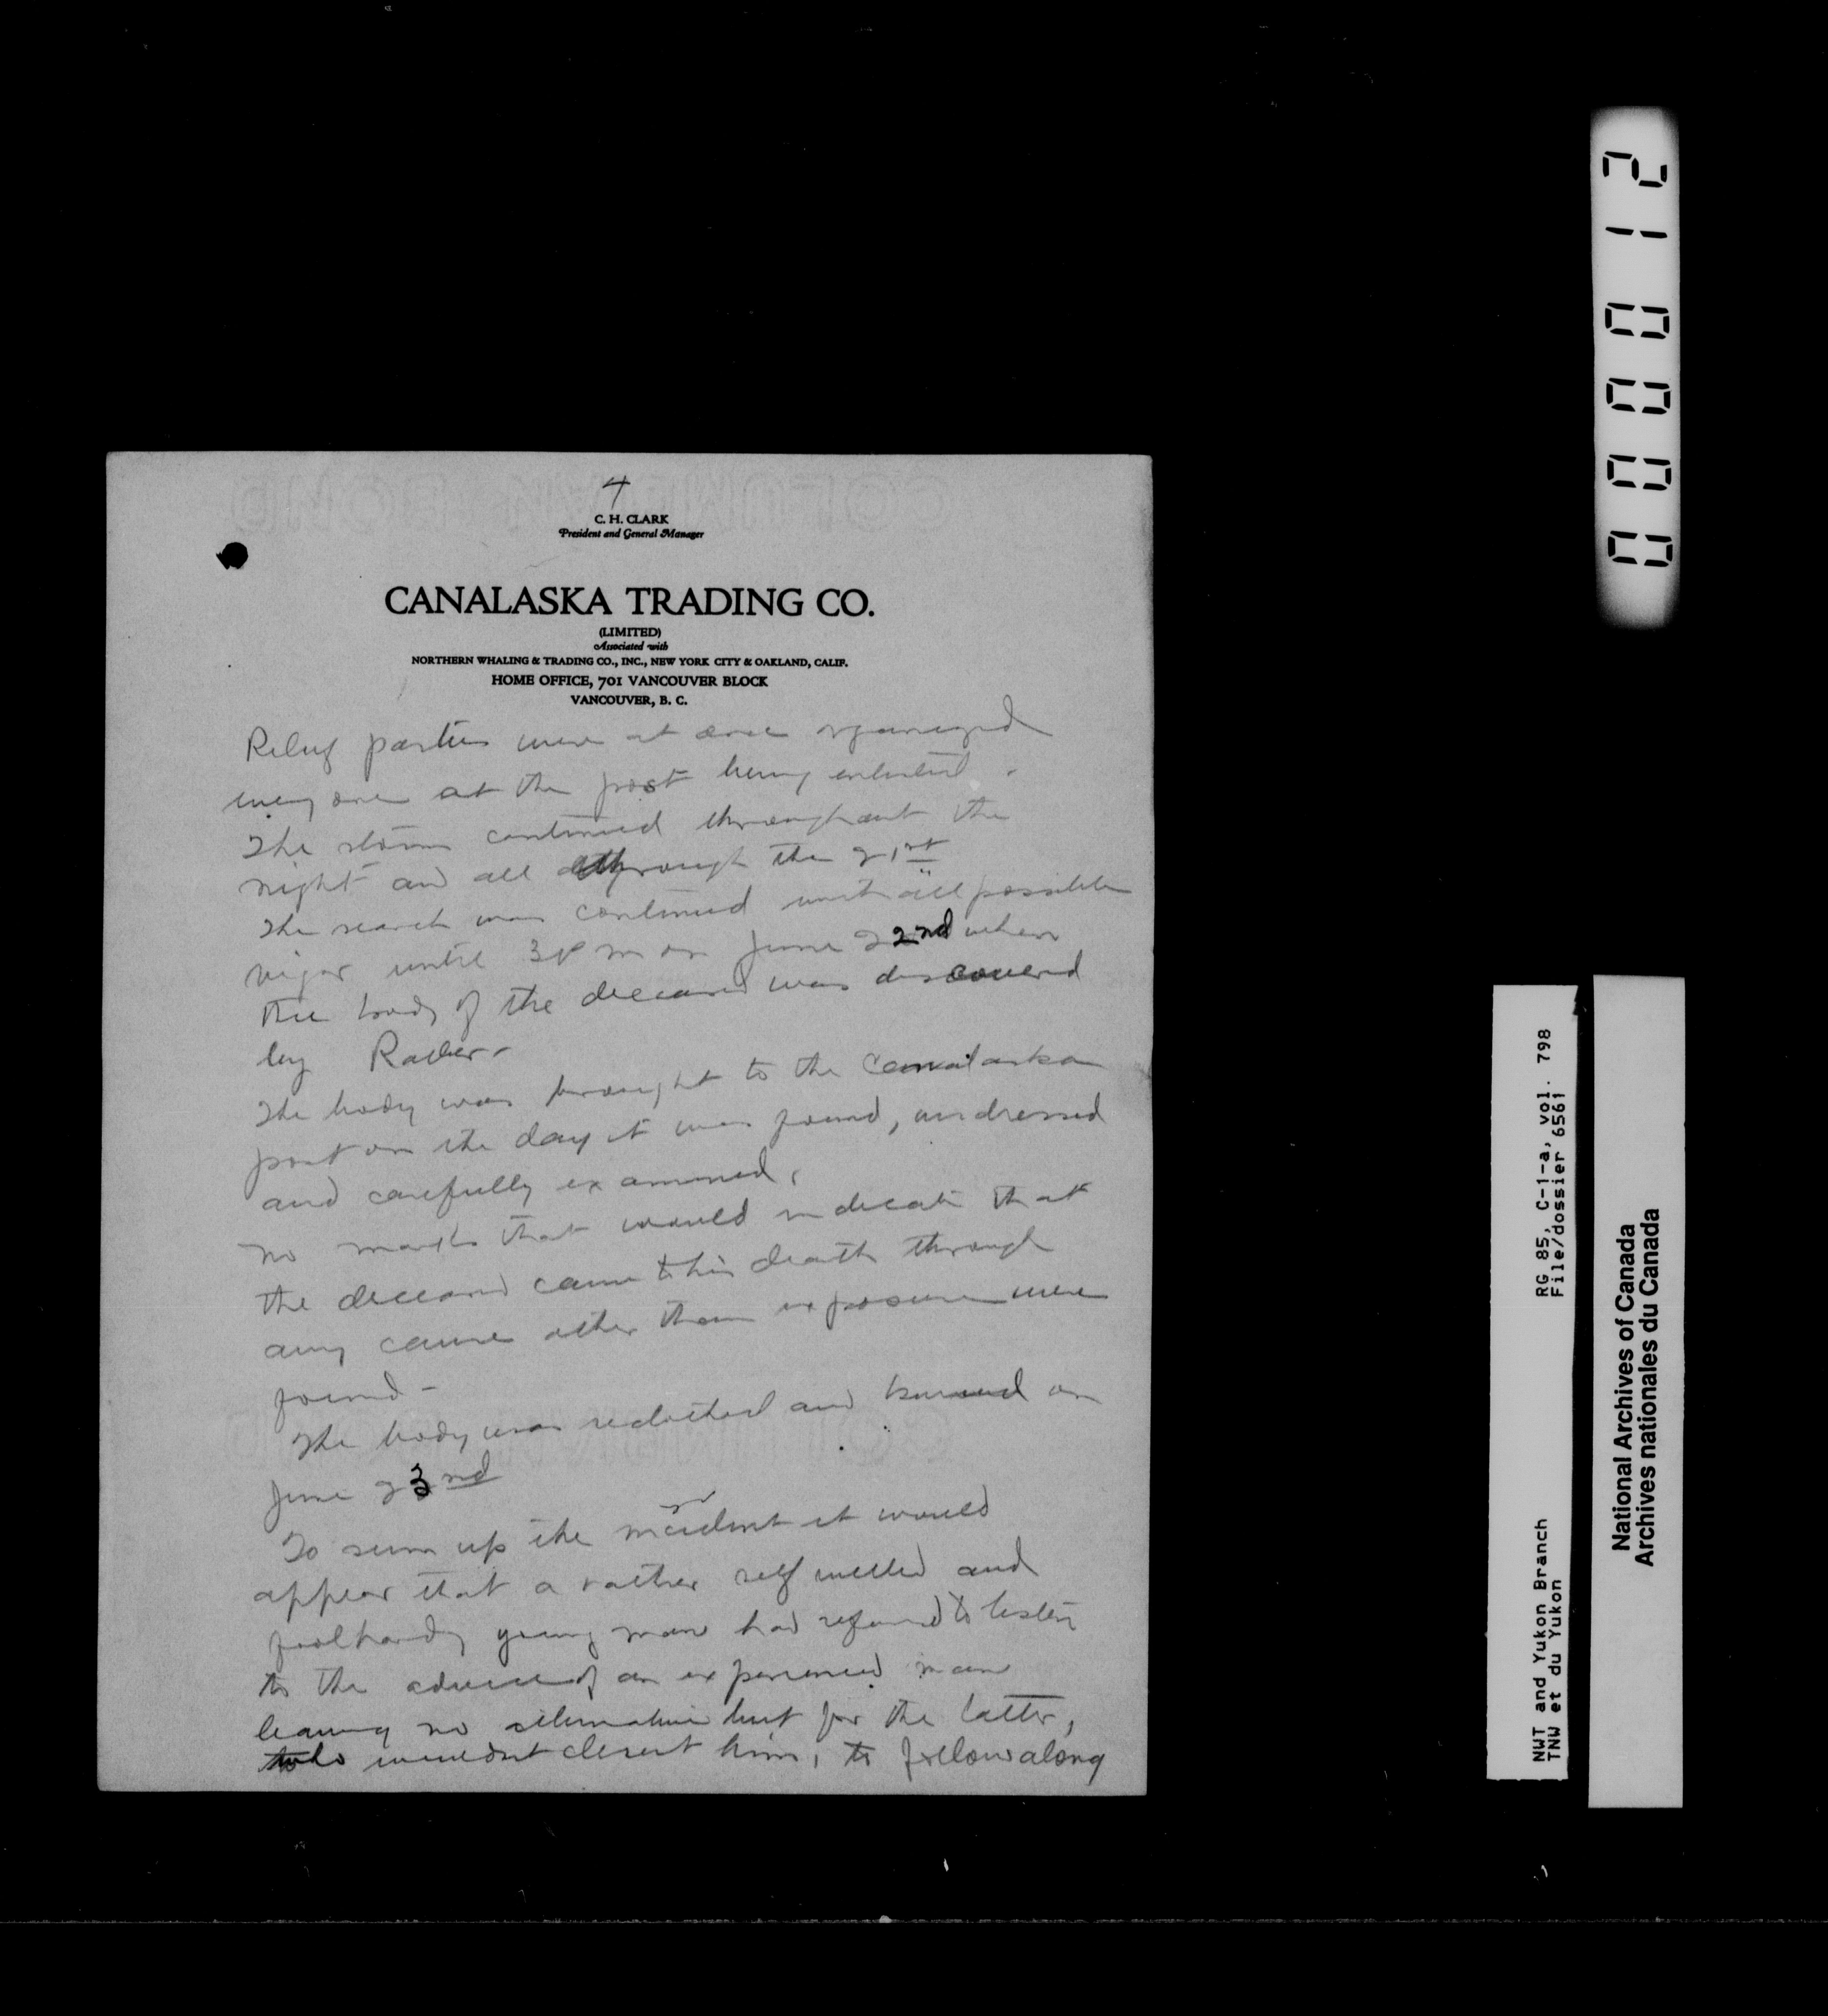 4
C. H. CLARK
President and General Manager
CANALASKA TRADING CO.
(LIMITED)
Associated with
NORTHERN WHALING & TRADING CO., INC., NEW YORK CITY & OAKLAND, CALIF.
HOME OFFICE, 701 VANCOUVER BLOCK
VANCOUVER, B. C.
Relief parties were at once organized
every one at the post being enlisted.
The storm continued throughout the
night and all through the 21st
The search was continued with all possible
vigor until 3 P m on June 22nd when
the body of the deceased was discovered
by
The body was brought to the Canalaska
post on the day it was found, undressed
and carefully examined,
no marks that would indicate that
the deceased came to his death through
any cause other than exposure were
found -
The body was reclothed and buried on
June 23nd
To sum up the incident it would
appear that a rather self willed and
foolhardy young man had refused to listen
to the advice of an experienced man
leaving no alternative but for the latter,
who wouldnt desert him, to follow along
000012
RG 85, C-1-a, vol. 798
File/dossier 6561
NWT and Yukon Branch
TNW et du Yukon
National Archives of Canada
Archives nationales du Canada